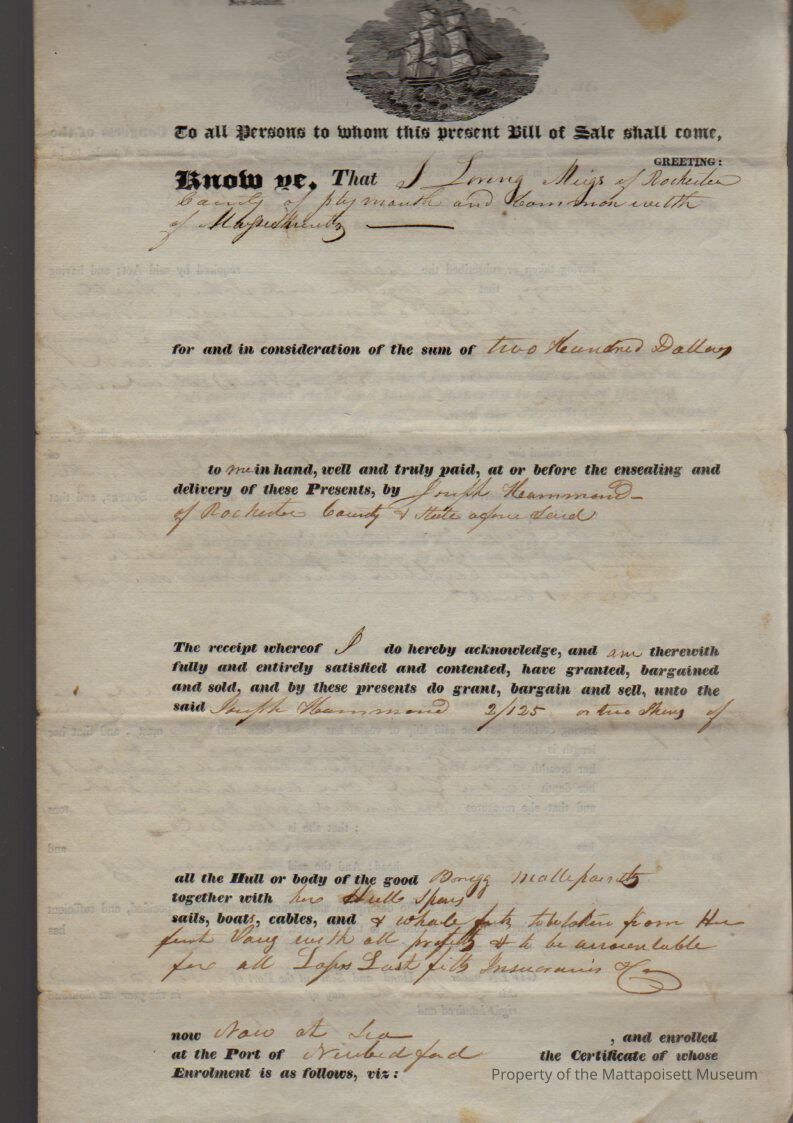 New-Bedford.
To all Persons to whom this present Bill of Sale shall come,
GREETING:
Know ye, That I Loring Meigs of Rochester
County of plymouth and Common welth
of
for and in consideration of the sum of two Hundred Dollars
to me in hand, well and truly paid, at or before the ensealing and
delivery of these Presents, by Joseph Hammond
of Rochester County & State afore Said
The receipt whereof I do hereby acknowledge, and am therewith
fully and entirely satisfied and contented, have granted, bargained
and sold, and by these presents do grant, bargain and sell, unto the
said Joseph Hammond 2/125 or two of
all the Hull or body of the good
together with her Spars
sails, boats, cables, and & whale to be taken from Her
with all & to be accountable
for all Last fitts &c
now Now at Sea , and enrolled
at the Port of Newbedford the Certificate of whose
Enrolment is as follows, viz:
Property of the Mattapoisett Museum